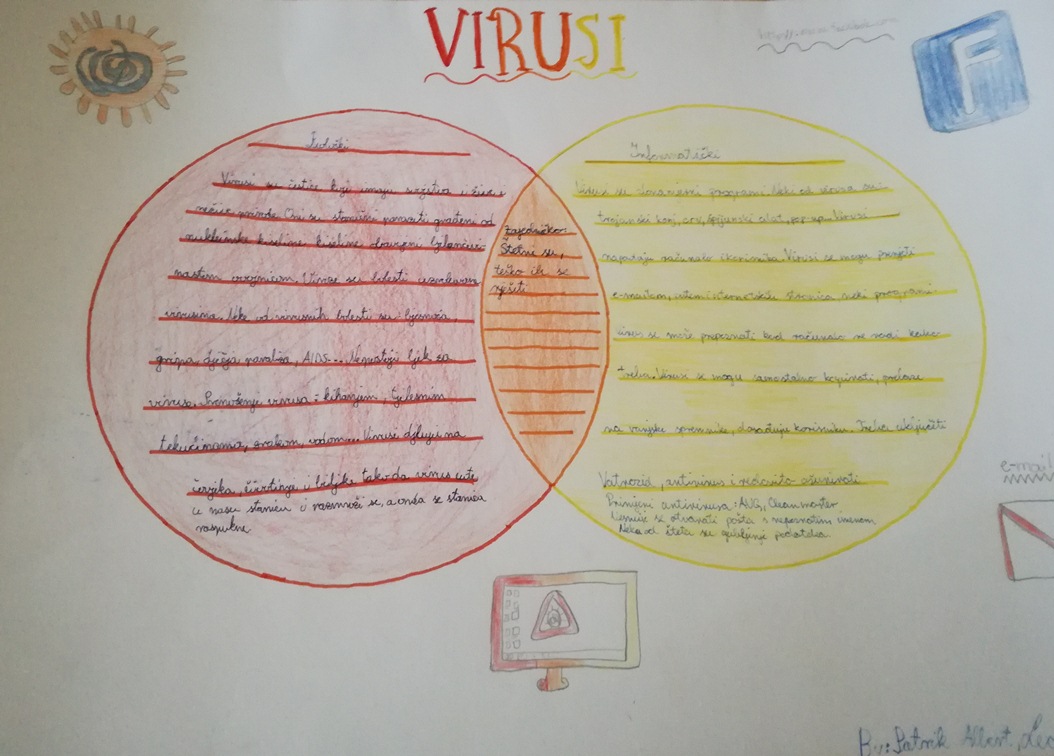 VIRUSI
F
Ljudski
Virusi su čestice koji imaju svojstva i žive i
nežive prirode. Oni su stanični paraziti građeni od
nukleinske kiseline, kiseline obavijeni bjelančevi-
nastom ovojnicom. Viroze su bolesti uzrokovane
virusima. Neke od virusnih bolesti su: ljesnica,
gripa, dječja paraliza, AIDS... Ne postoji ljek za
viruse. Prenošenje virusa = kihanjem, tjelesnim
tekućinama, zrakom, vodom... Virusi djeluju na
čovjeka, životinje i biljke tako da virus uđe
u našu stanicu i razmnoži se, a onda se stanica
raspukne
Zajedničko:
Štetni su,
teško ih se
riješiti
Informatički
Virusi su zlonamjerni programi. Neki od virusa su:
trojanski konj, crv, špijunski alat, pop-up... Virusi
napadaju računalo i korisnika. Virusi se mogu prenijeti
e-mailom, internetskih stranica neki programi
Virus se može prepoznati kad računalo ne radi kako
treba. Virusi se mogu samostalno kopirati, prelaze
na vanjske spremnike, korisniku. Treba uključiti
Vatrozid, antivirus i redovito ažurirati
Primjeri antivirusa: AVG, Clean master
se otvarati pošta s nepoznatim imenom
Neke od šteta su gubljenje podataka
e-mail
By: Patrik Albert, Leo